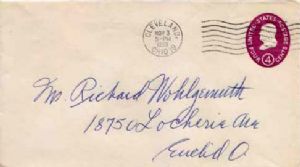 CLEVELAND
NOV 3
5-PM
OHIO
UNITED STATES POSTAGE
4
FOUR CENTS
Mr Richard Wohlgemuth
18750 Locherie Ave
Euclid O.